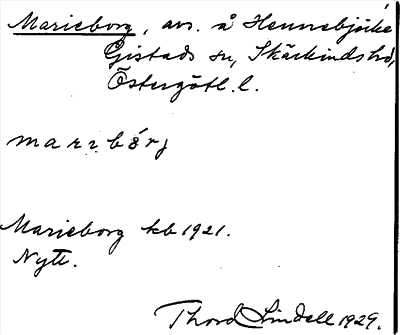 Marieborg, avs. å Hennebjörke
Gistads sn, Skärkinds hd,
Östergötl. l.
marıbórj
Marieborg kb 1921.
Nytt.
Thord Lindell 1929.